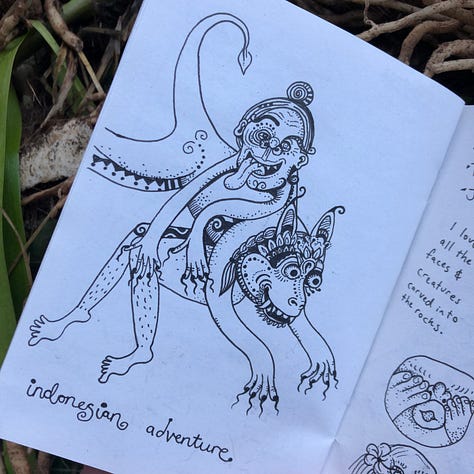 indonesian adventure
I love
all the
faces &
creatures
carved into
the rocks.